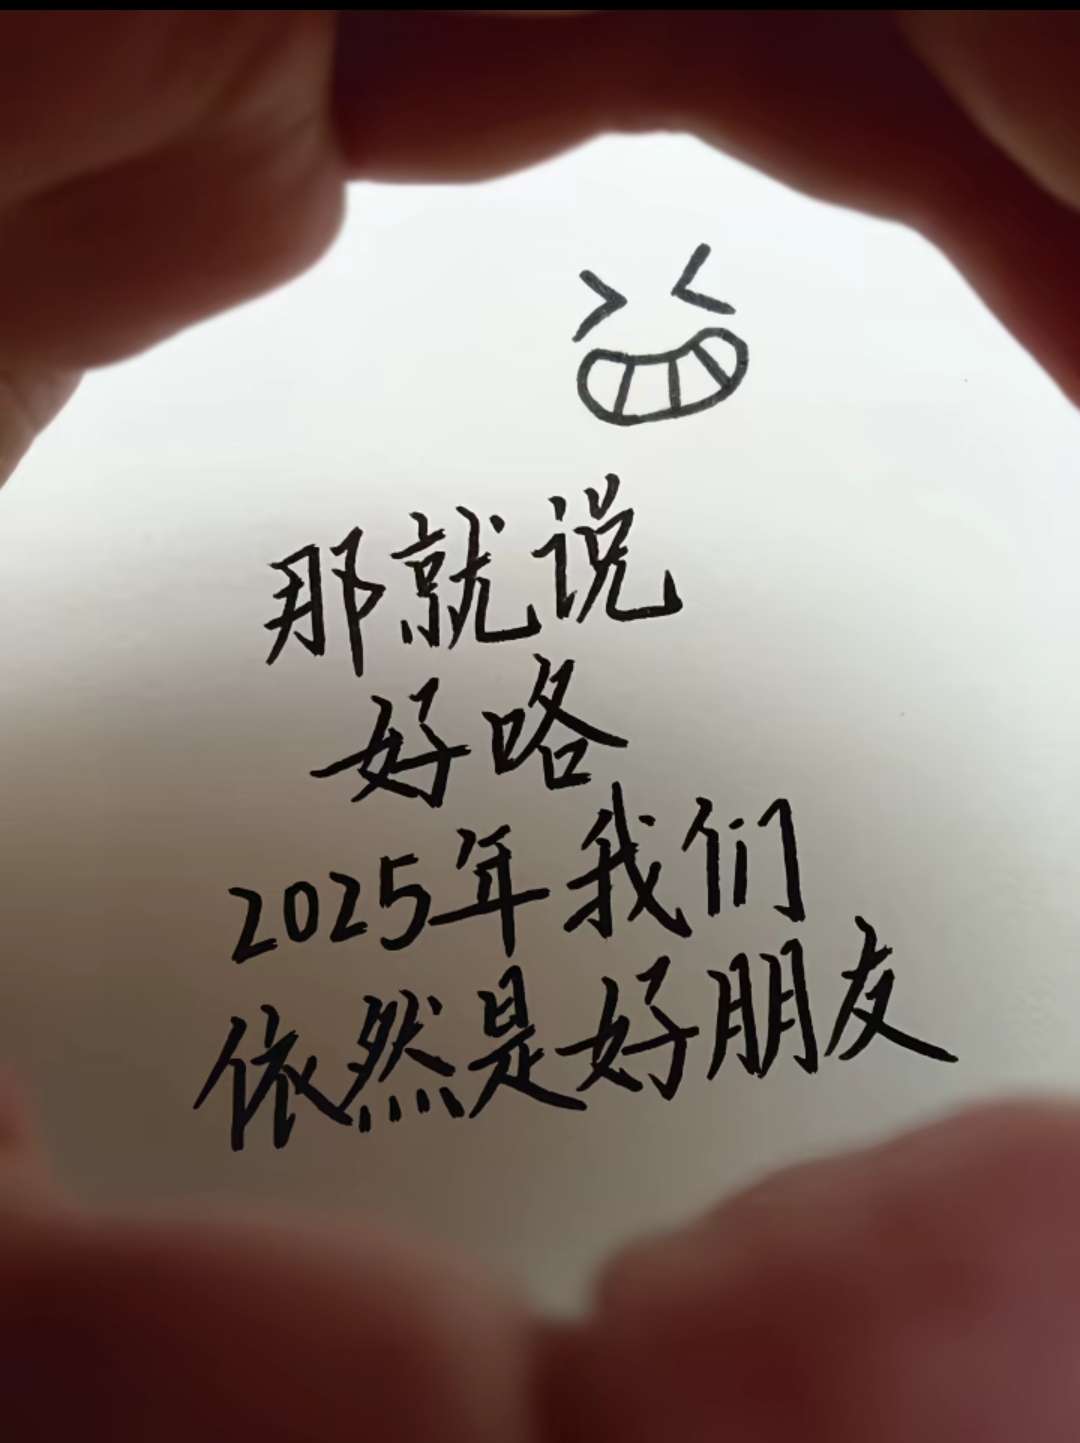 那就说
好咯
2025年我们
依然是好朋友